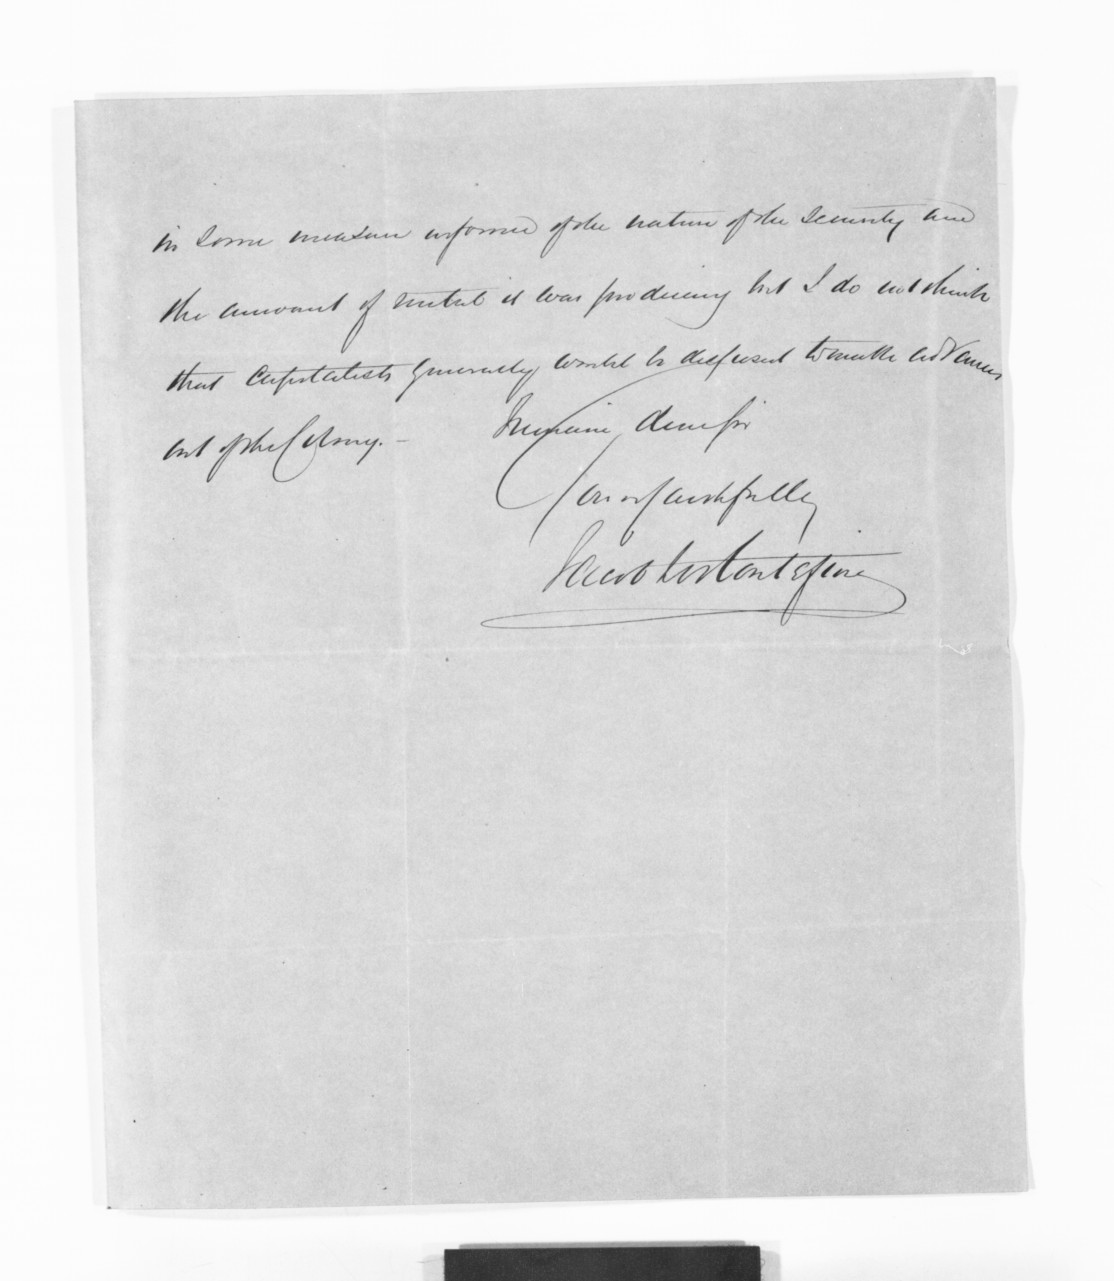 in some measure informed of the nature of the security and
the amount of metal it was producing but I do not think
that capitalists generally would be disposed to make advances
out of the Colony. –
I remain, dear Sir
Yours faithfully
Jacob Montefiore